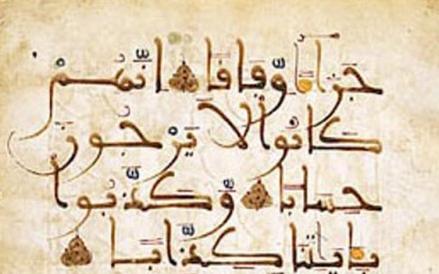 جَزَاءً وِفَاقًا إِنَّهُمْ
كَانُوا لَا يَرْجُونَ
حِسَابًا وَكَذَّبُوا
بِآيَتِنَا كِذَّابًا